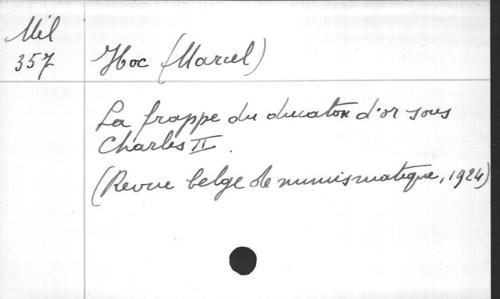 Mél
357
Hoc (Marcel)
La frappe du ducaton d'or sous
Charles II.
(Revue belge de numismatique, 1924)